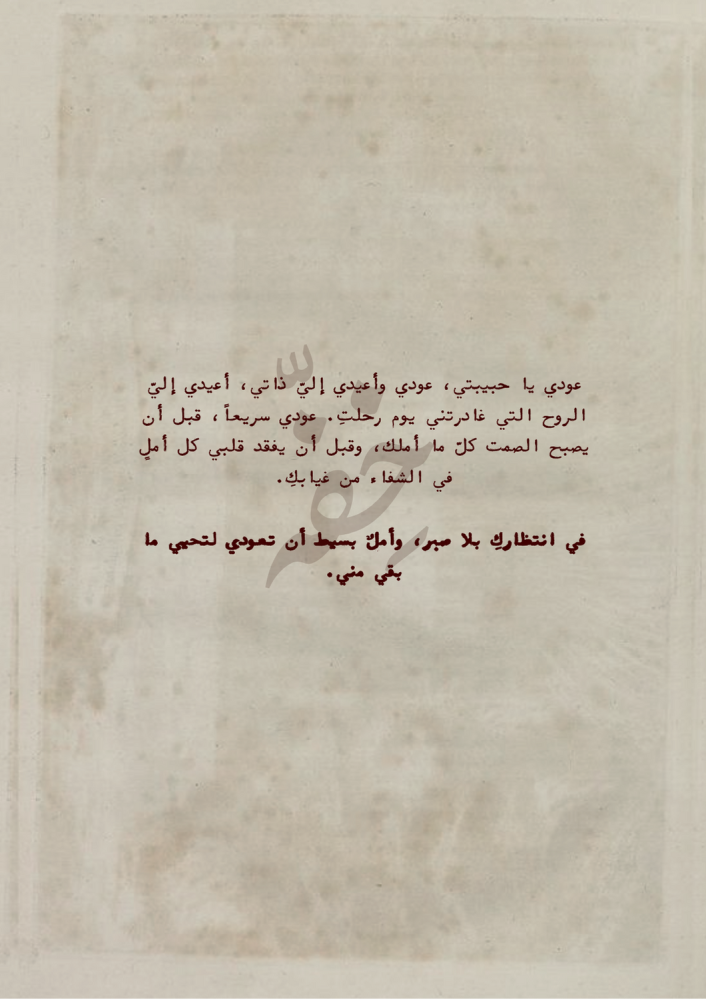 عودي يا حبيبتي، عودي وأعيدي إليّ ذاتي، أعيدي إليّ
الروح التي غادرتني يوم رحلتِ. عودي سريعاً، قبل أن
يصبح الصمت كلّ ما أملك، وقبل أن يفقد قلبي كل أملٍ
في الشفاء من غيابكِ.
في انتظاركِ بلا صبر، وأملٌ بسيط أن تعودي لتحيي ما
بقي مني.